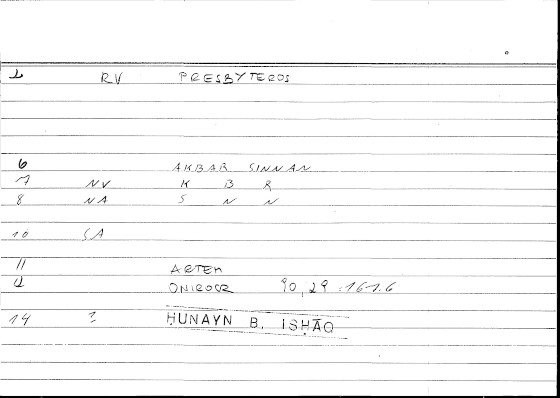 1 RV PRESBYTEROS
6 AKBAR SINNAN
7 NV K B R
8 NA S N N
10 SA
11 ARTEM
12 ONIROCR 90,29 :161.6
14 ? ḤUNAYN B. ISḤĀQ